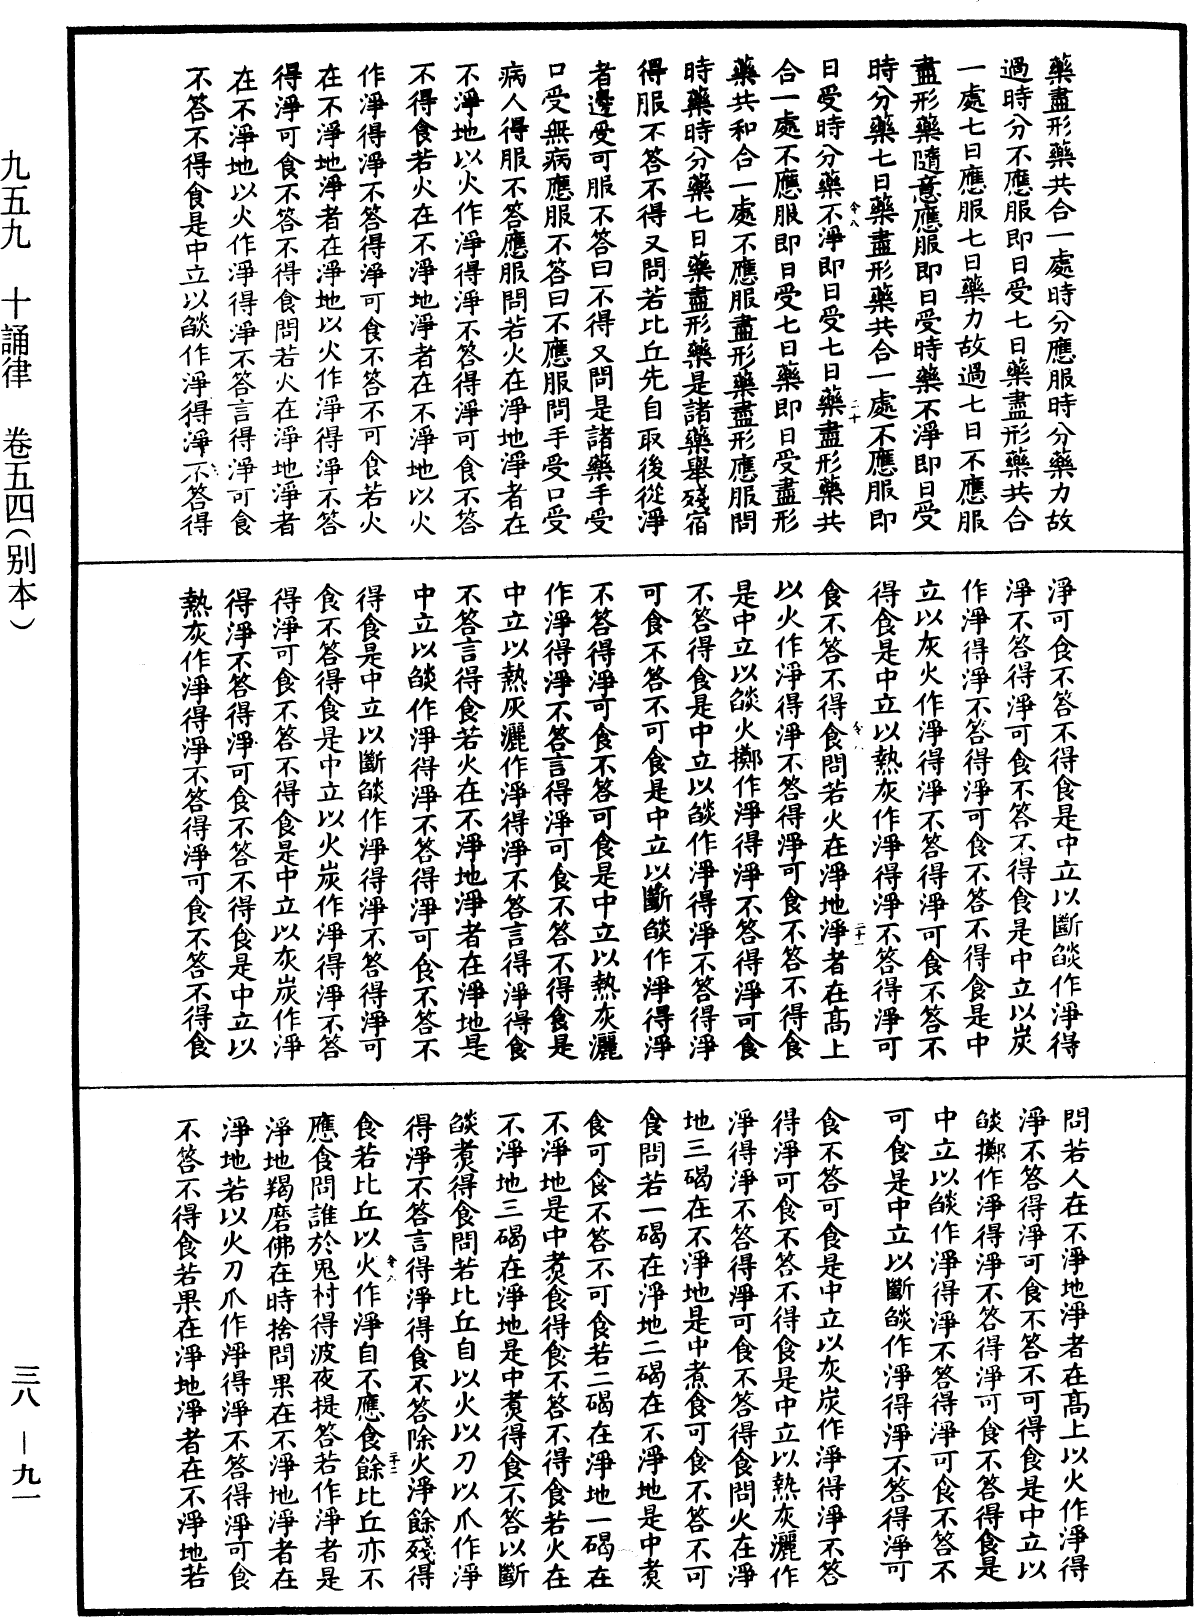 藥盡形藥共合一處時分應服時分藥力故
過時分不應服即日受七日藥盡形藥共合
一處七日應服七日藥力故過七日不應服
盡形藥隨意應服即日受時藥不淨即日受
時分藥七日藥盡形藥共合一處不應服即
日受時分藥不淨即日受七日藥盡形藥共
合一處不應服即日受七日藥即日受盡形
藥共和合一處不應服盡形藥盡形應服問
時藥時分藥七日藥盡形藥是諸藥舉殘宿
得服不答不得又問若比丘先自取後從淨
者邊受可服不答曰不得又問是諸藥手受
口受無病應服不答曰不應服問手受口受
病人得服不答應服問若火在淨地淨者在
不淨地以火作淨得淨不答得淨可食不答
不得食若火在不淨地淨者在不淨地以火
作淨得淨不答得淨可食不答不可食若火
在不淨地淨者在淨地以火作淨得淨不答
得淨可食不答不得食問若火在淨地淨者
在不淨地以火作淨得淨不答言得淨可食
不答不得食是中立以燄作淨得淨不答得
淨可食不答不得食是中立以斷燄作淨得
淨不答得淨可食不答不得食是中立以炭
作淨得淨不答得淨可食不答不得食是中
立以灰火作淨得淨不答得淨可食不答不
得食是中立以熱灰作淨得淨不答得淨可
食不答不得食問若火在淨地淨者在高上
以火作淨得淨不答得淨可食不答不得食
是中立以燄火擲作淨得淨不答得淨可食
不答得食是中立以燄作淨得淨不答得淨
可食不答不可食是中立以斷燄作淨得淨
不答得淨可食不答可食是中立以熱灰灑
作淨得淨不答言得淨可食不答不得食是
中立以熱灰灑作淨得淨不答言得淨得食
不答言得食若火在不淨地淨者在淨地是
中立以燄作淨得淨不答得淨可食不答不
得食是中立以斷燄作淨得淨不答得淨可
食不答得食是中立以火炭作淨得淨不答
得淨可食不答不得食是中立以灰炭作淨
得淨不答得淨可食不答不得食是中立以
熱灰作淨得淨不答得淨可食不答不得食
問若人在不淨地淨者在高上以火作淨得
淨不答得淨可食不答不可得食是中立以
燄擲作淨得淨不答得淨可食不答得食是
中立以燄作淨得淨不答得淨可食不答不
可食是中立以斷燄作淨得淨不答得淨可
食不答可食是中立以灰炭作淨得淨不答
得淨可食不答不得食是中立以熱灰灑作
淨得淨不答得淨可食不答得食問火在淨
地三碣在不淨地是中煮食可食不答不可
食問若一碣在淨地二碣在不淨地是中煮
食可食不答不可食若二碣在淨地一碣在
不淨地是中煮食得食不答不得食若火在
不淨地三碣在淨地是中煮得食不答以斷
燄煮得食問若比丘自以火以刀以爪作淨
得淨不答言得淨得食不答除火淨餘殘得
食若比丘以火作淨自不應食餘比丘亦不
應食問誰於鬼村得波夜提答若作淨者是
淨地羯磨佛在時捨問果在不淨地淨者在
淨地若以火刀爪作淨得淨不答得淨可食
不答不得食若果在淨地淨者在不淨地若
九五九 十誦律 卷五四(别本)
三八 — 九一